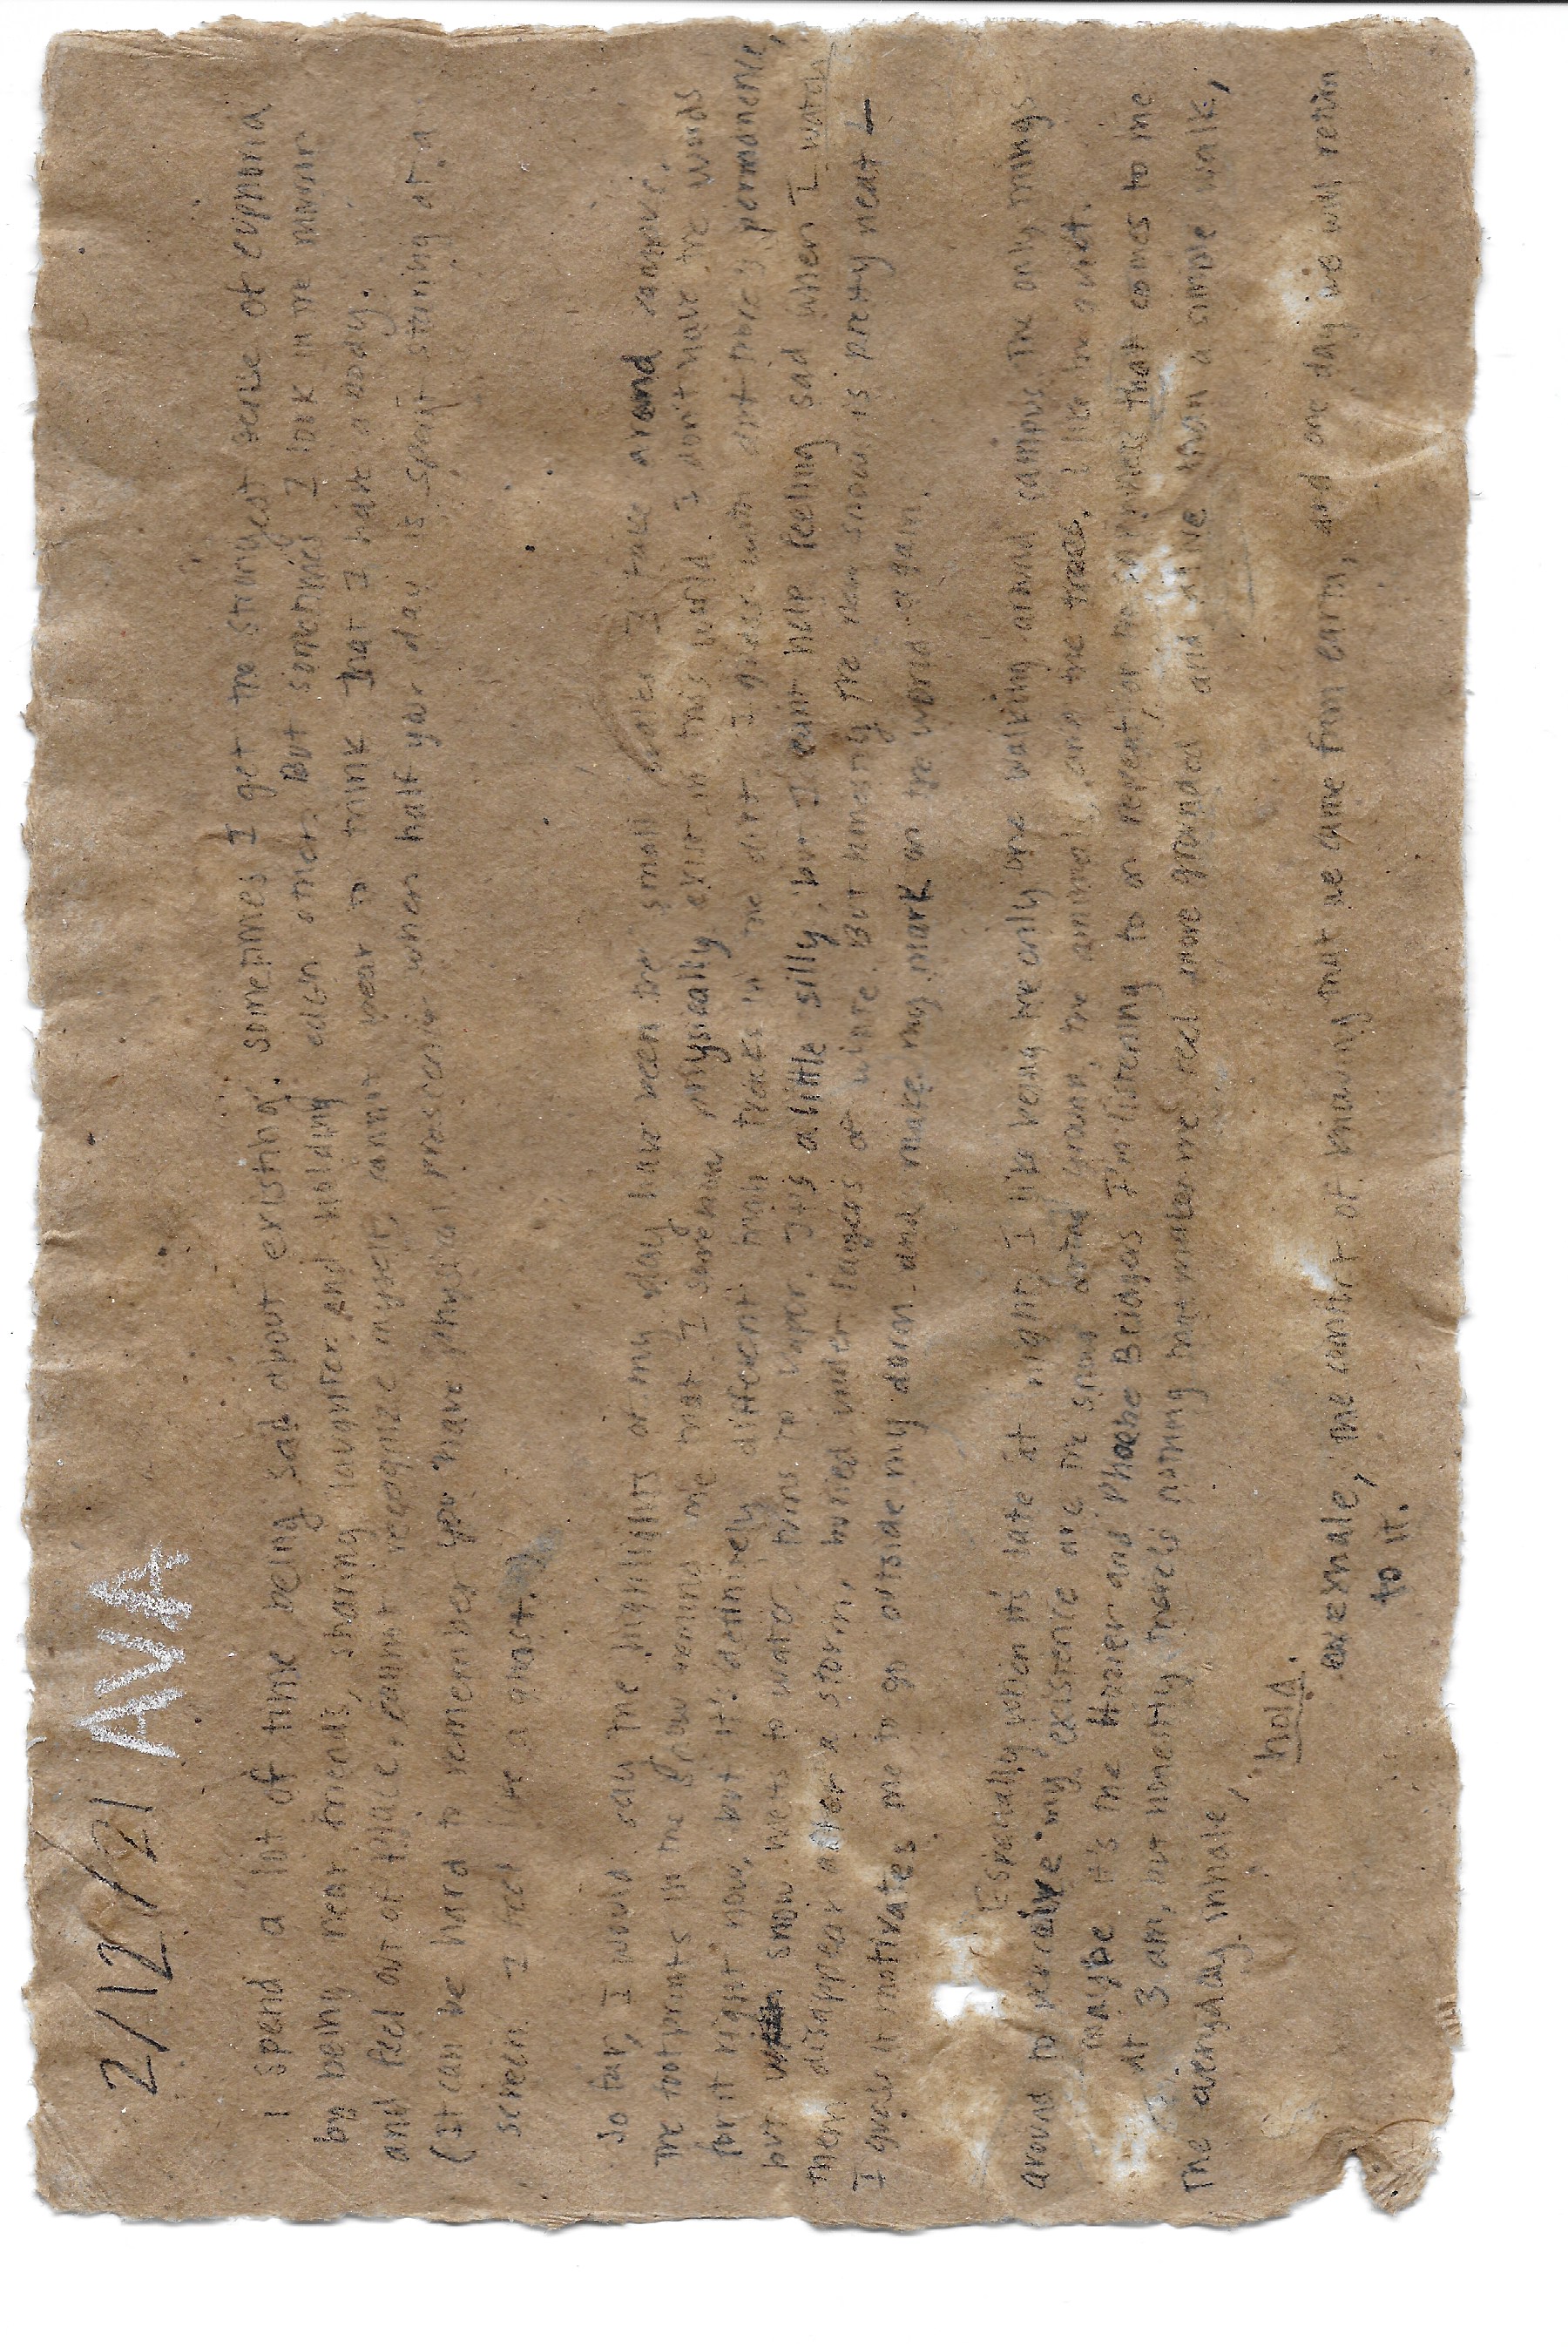 2/12/21 AVA
I spend a lot of time being sad about existing. Sometimes I get the strongest sense of euphoria
by being near friends, sharing laughter and holding each other. But sometimes I look in the mirror
and feel out of place, cannot recognize myself, cannot bear to think that I have a body.
(It can be hard to remember you have physical when half your day is spent staring at a
screen. I feel like a ghost.)
So far, I would say the highlights of my day have been the small walks I take around campus.
The footprints in the snow remind me that I somehow physically exist in this world. I don't have the words
for it right now, but it's definitely different than tracks in the dirt. I guess with dirt there's permanence,
but snow melts to water, turns to vapor. It's a little silly, but I can't help feeling sad when I watch
them disappear after a storm, buried under layers of white. But honestly the new snow is pretty neat –
I guess it motivates me to go outside my dorm and make my mark on the world again.
Especially when it's late at night, I like being the only one walking around campus. The only things
around to perceive my existence are the snow ground, the animals, and the trees. I like the quiet.
Maybe it's the Hozier and Phoebe Bridgers I'm listening to on repeat, or the that comes to me
at 3 am, but honestly there's nothing that makes me feel more grounded and alive than a simple walk,
The everyday inhale,
hold.
exhale, the comfort of knowing that we came from earth, and one day we will return
to it.